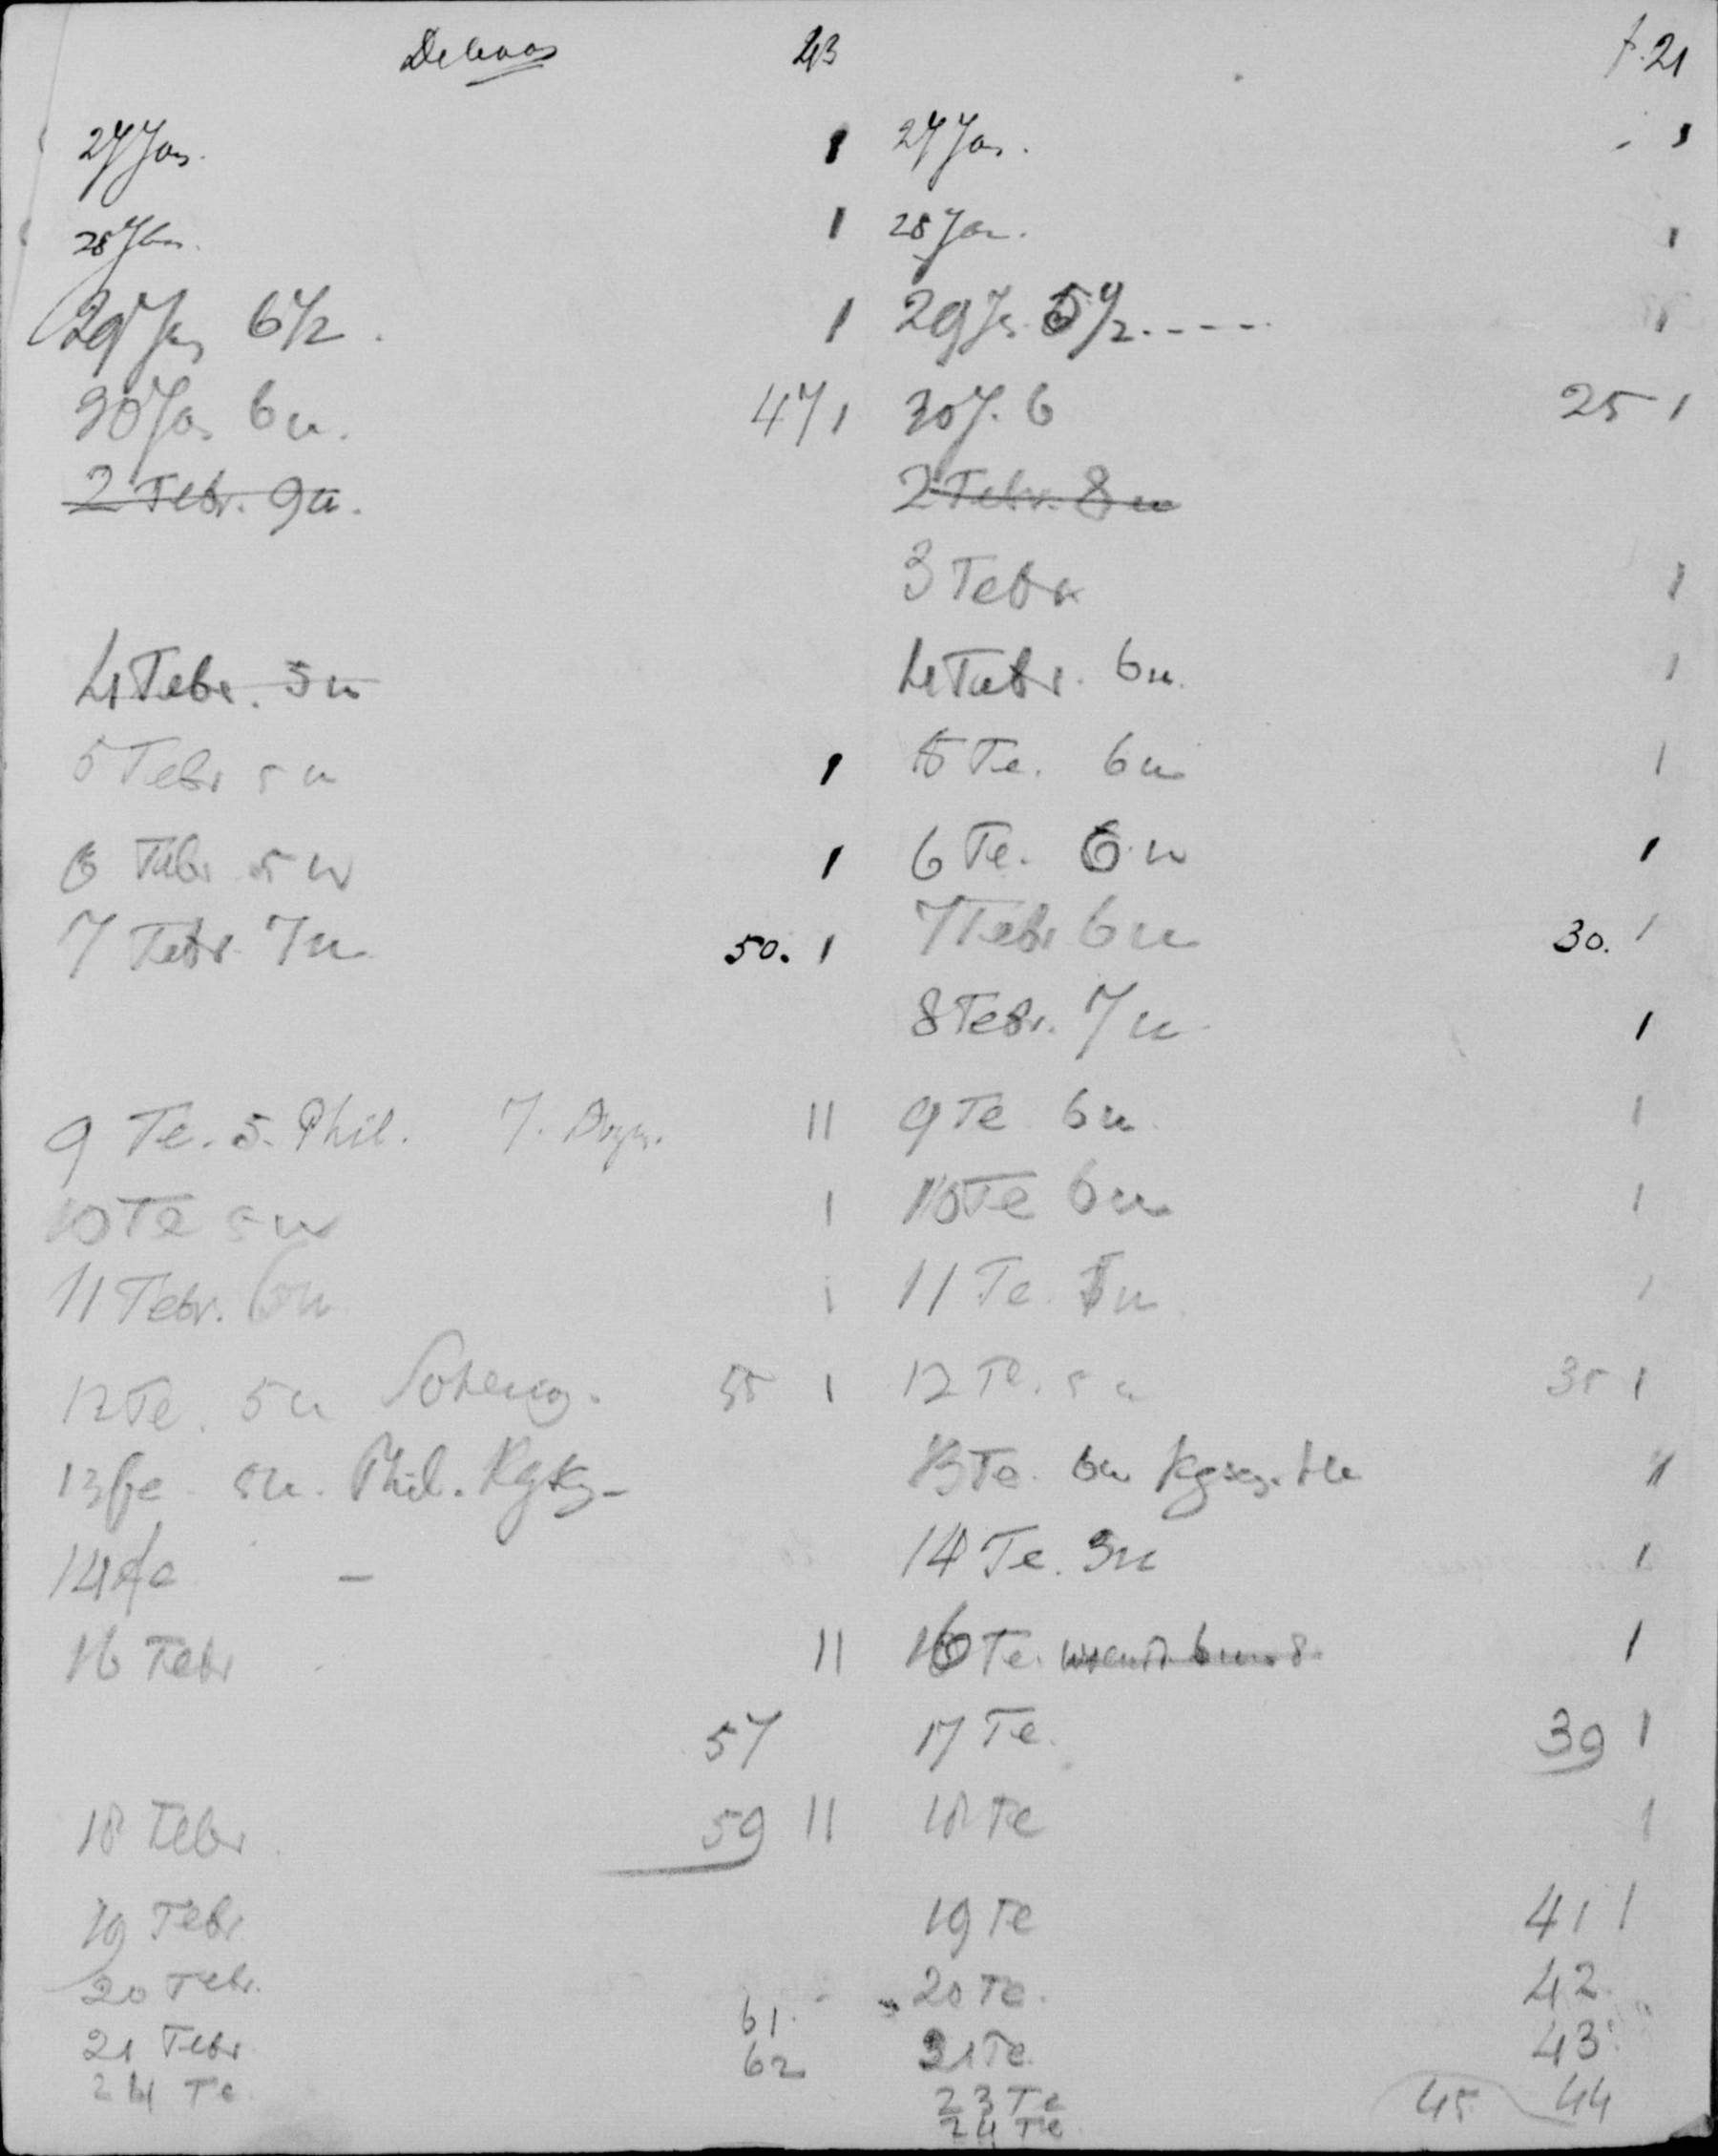 43 f. 21
27 Jan. 1 27 Jan. - 1
28 Jan. 1 28 Jan. 1
29 Jan 6 1/2. 1 29 Js. 5 1/2. - - - - 1
30 Jan 6 u. 47 1 30 J. 6 25 1
2 Febr. 9 u. 2 Febr. 8 u
3 Febr 1
4 Febr. 5 u 4 Febr. 6 u. 1
5 Febr 5 u 1 5 Fe. 6 u 1
6 Febr 5 u 1 6 Fe. 6 u 1
7 Febr. 7 u 50. 1 7 Febr 6 u 30. 1
8 Febr. 7 u 1
9 Fe. 5. Phil. 7. 11 9 Fe 6 u. 1
10 Fe 5 u 1 10 Fe 6 u 1
11 Febr. 6 u 1 11 Fe. u 1
12 Fe. 5 u 55 1 12 Fe. 5 u 35 1
13 fe. 5 u. Phil. 13 Fe. 6 u
14 fe - 14 Fe. 3 u 1
16 Febr 11 16 Fe. 1
57 17 Fe. 39 1
18 Febr 59 11 18 Fe 1
19 Febr. 19 Fe 41 1
20 Febr. 61. 20 Fe. 42.
21 Febr 62 21 Fe. 43
24 Fe. 23 Fe 45 44
24 Fe